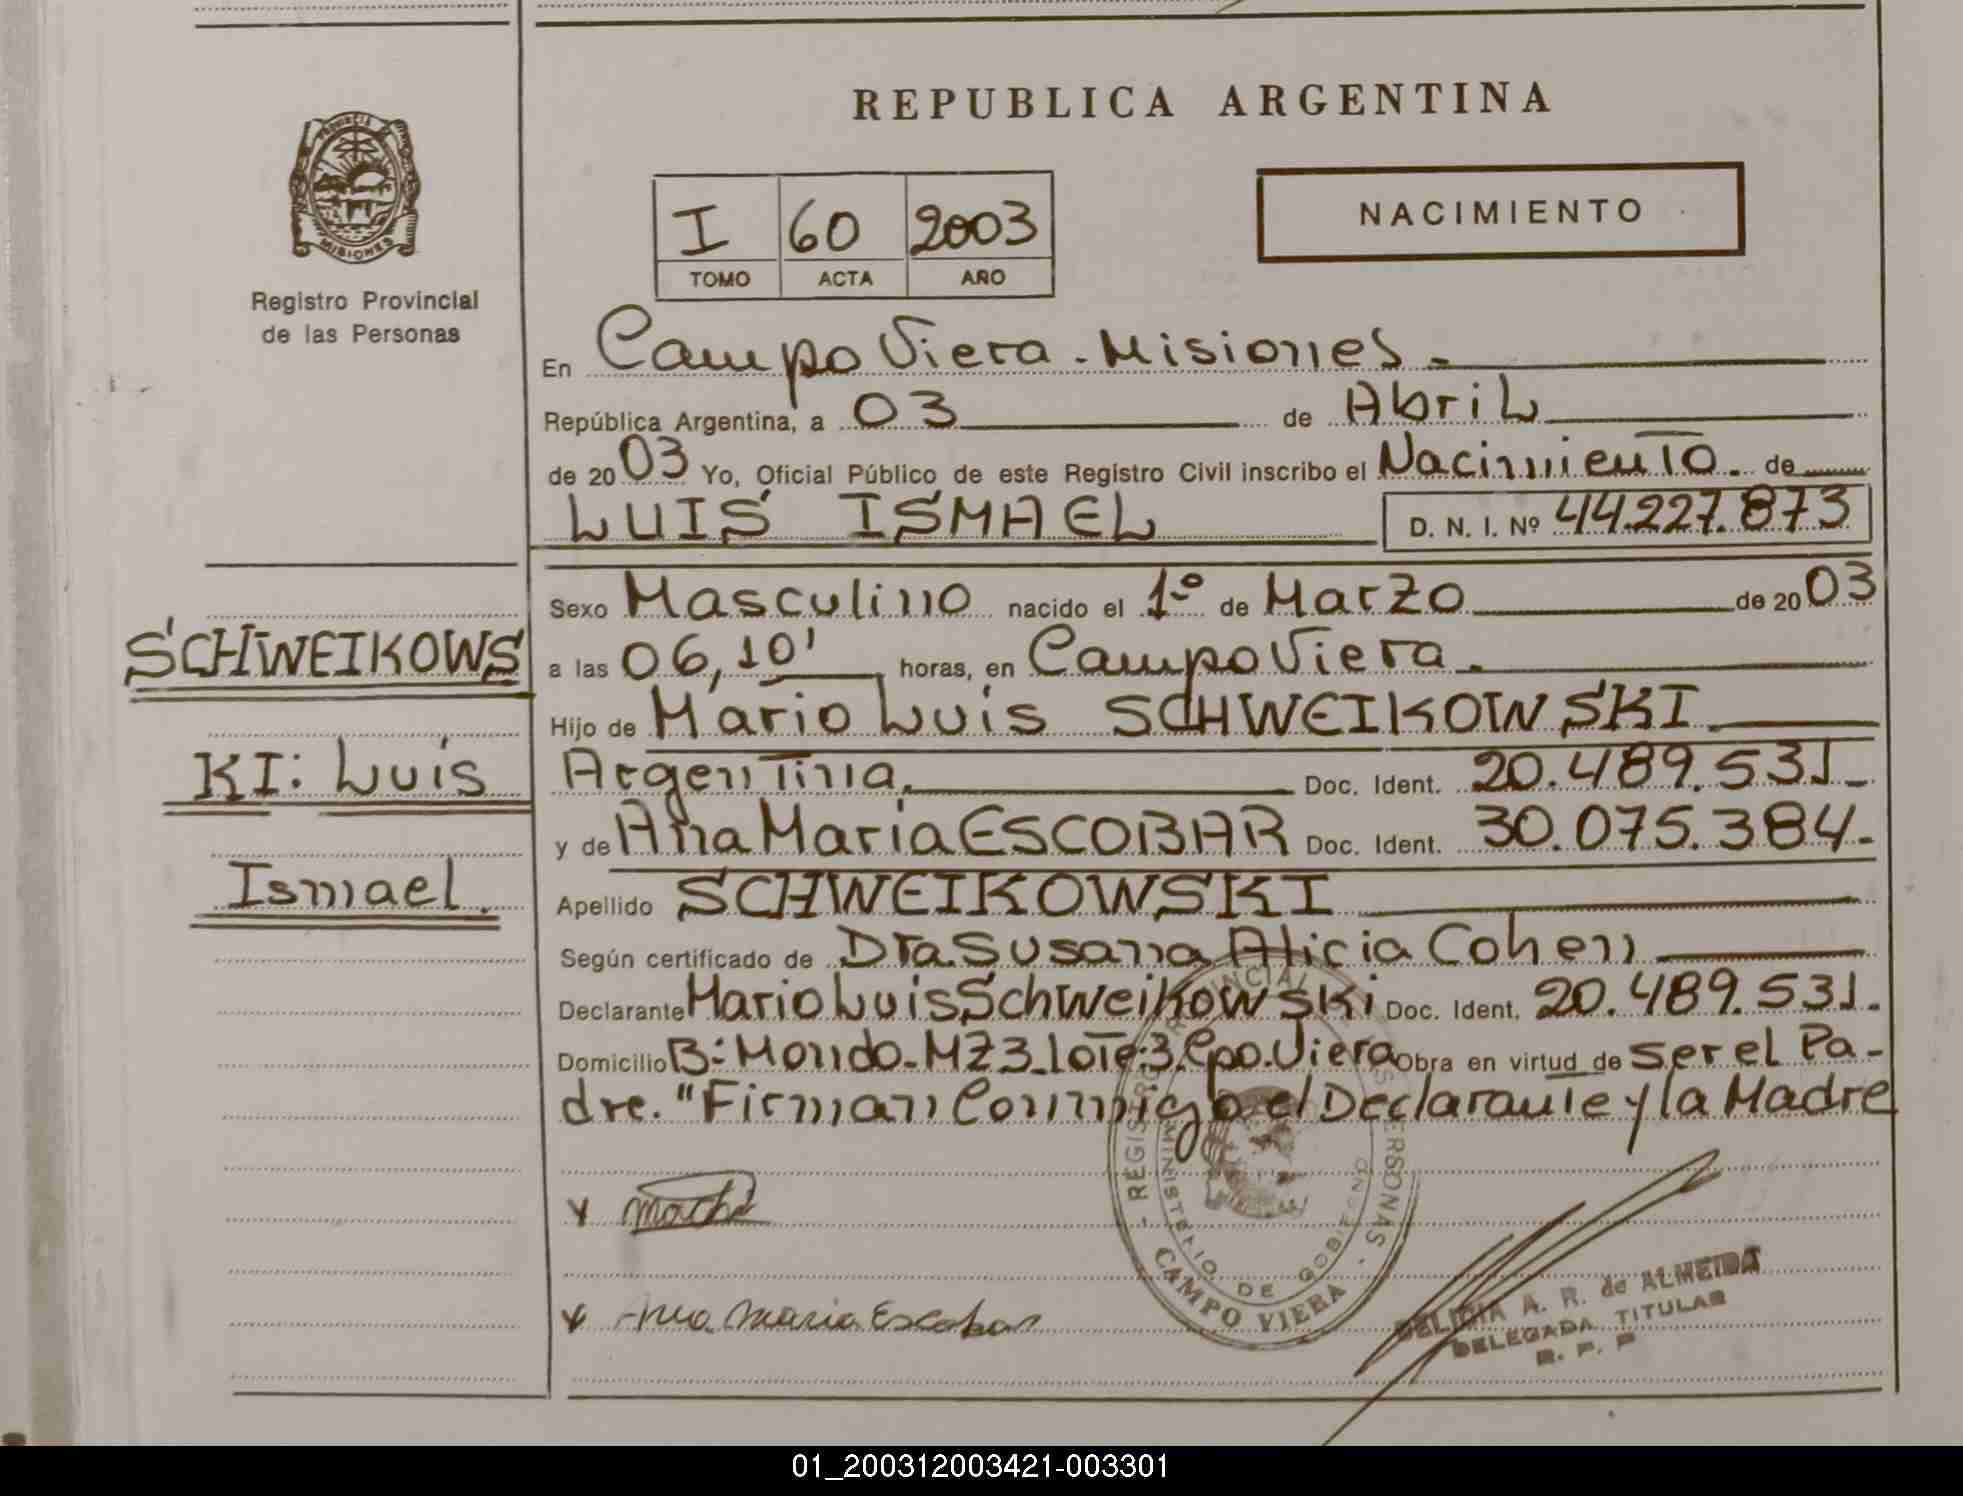 REPUBLICA ARGENTINA
PROVINCIA DE MISIONES
Registro Provincial
de las Personas
I 60 2003
TOMO ACTA AÑO
NACIMIENTO
En Campo Viera - Misiones.
República Argentina, a 03 de Abril
de 2003 Yo, Oficial Público de este Registro Civil inscribo el Nacimiento. de
LUIS ISMAEL D. N. I. Nº 44.227.873
Sexo Masculino nacido el 1º de Marzo de 2003
a las 06,10' horas, en Campo Viera.
Hijo de Mario Luis SCHWEIKOWSKI
Argentina. Doc. Ident. 20.489.531-
y de Ana María ESCOBAR Doc. Ident. 30.075.384-
Apellido SCHWEIKOWSKI
Según certificado de Dra. Susana Alicia Cohen
Declarante Mario Luis Schweikowski Doc. Ident. 20.489.531.
Domicilio B: Mondo - MZ 3 - Lote: 3. Cpo. Viera Obra en virtud de ser el Pa-
dre. "Firman Conmigo el Declarante y la Madre
SCHWEIKOWS
KI: Luis
Ismael.
Ana Maria Escobar
REGISTRO PROVINCIAL DE LAS PERSONAS
MINISTERIO DE GOBIERNO
CAMPO VIERA
DELICIA A. R. de ALMEIDA
DELEGADA TITULAR
R. P. P
01_200312003421-003301